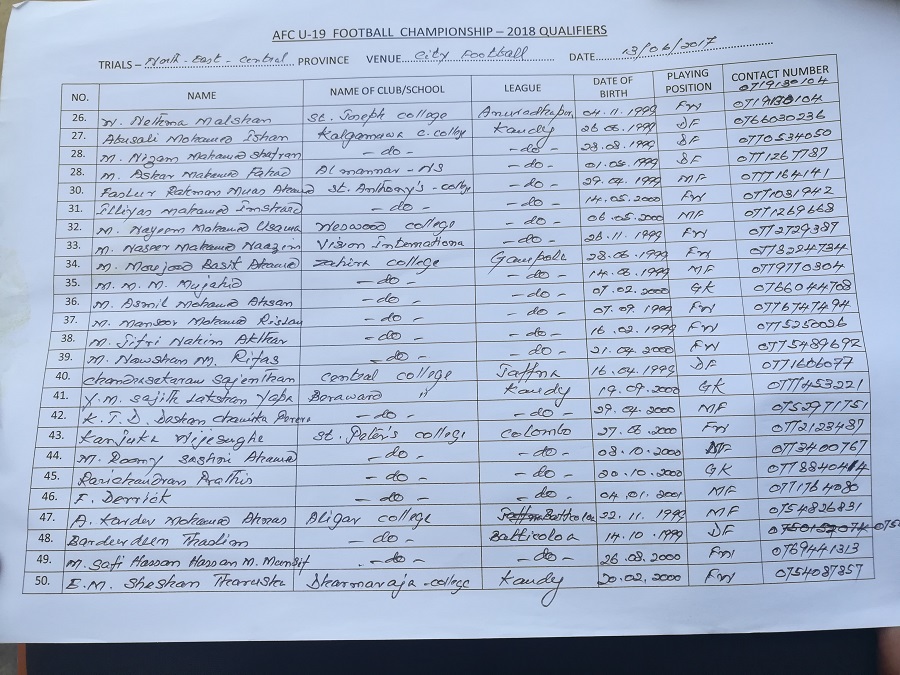 AFC U-19 FOOTBALL CHAMPIONSHIP – 2018 QUALIFIERS
TRIALS – North - East - Central PROVINCE VENUE City Football DATE 13/06/2017
NO. NAME NAME OF CLUB/SCHOOL LEAGUE DATE OF BIRTH PLAYING POSITION CONTACT NUMBER
0719130104
26. W. Nethma Malshan St. Joseph college Anuradhapur 04.11.1999 FW
27. Akusali Mohamed Ishan Kalgamuwa C. colleg Kandy 26.06.1999 DF 0766030236
28. M. Nizam Mohamed Shafran - do - - do - 23.08.1999 DF 0770534050
28. M. Askar Mohamed Fahad Al mannar - N/S - do - 01.05.1999 DF 0771267787
30. Faslur Rahman Muas Ahamed St. Anthony's - colleg - do - 29.04.1999 MF 0777164141
31. Illiyas Mohamed Imshard - do - - do - 14.05.2000 FW 0771031942
32. M. Nayeem Mohamed Usama Neswood college - do - 06.05.2000 MF 0771269668
33. M. Naseer Mohamed Naazim Vision Internationa - do - 26.11.1999 FW 0772729387
34. M. Moujood Basit Ahamed Zahira college Gampola 28.06.1999 FW 0778224734
35. M. M. M. Mujahid - do - - do - 14.08.1999 MF 0779770304
36. M. Asmil Mohamed Ahsan - do - - do - 07.02.2000 GK 0766044708
37. M. Mansoor Mohamed Rislan - do - - do - 07.09.1999 FW 0776747494
38. M. Sifri Nahim Athar - do - - do - 16.02.1999 FW 0775250026
39. M. Nowshan M. Rifas - do - - do - 21.04.2000 FW 0775489692
40. Chandrasekaram Sajenthan central college Jaffna 16.04.1999 DF 0771606077
41. Y.M. Sajith Lakshan Yapa Boraward " Kandy 19.09.2000 GK 0777453221
42. K.T.D. Dashan Chamika Perera - do - - do - 29.04.2000 MF 0752971751
43. Kanjuka Wijesughe St. Peter's college colombo 27.06.2000 FW 0772123487
44. M. Roomy Sashni Ahamed - do - - do - 08.10.2000 MF 0773400767
45. Ravichandran Prathis - do - - do - 20.10.2000 GK
46. F. Derrick - do - - do - 04.01.2001 MF 0771764080
47. A. Karder Mohamed Ahnas Aligar college Batticoloa 22.11.1999 MF 0754826831
48. Bardurdeen Thaslim - do - Batticoloa 14.10.1999 DF
49. M. Safi Hassan Hassan M. Munsif - do - - do - 26.08.2000 FW 0769441313
50. E.M. Sheshan Tharusha Dharmaraja - college Kandy 20.02.2000 FW 0754087857